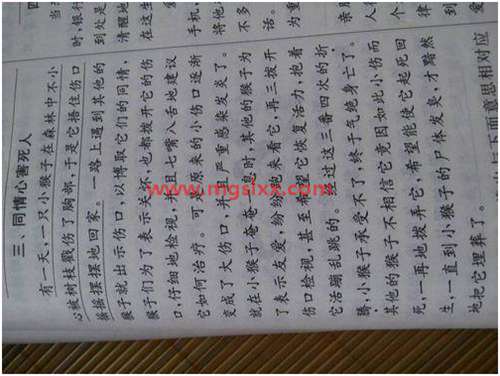 三、同情心害死人
有一天,一只小猴子在森林中不小
心被树枝戳伤了胸部,于是它捂住伤口
摇摇摆摆地回家。一路上遇到其他的
猴子就出示伤口,以博取它们的同情,
猴子们为了表示关怀,也都拨开它的伤
口,仔细地检视,并且七嘴八舌地建议
它如何治疗。可是原来的小伤口逐渐
变成了大伤口,并且严重感染发炎了。
就在小猴子奄奄一息时,其他的猴子为
了表示友爱,纷纷跑来看它,再三拨开
伤口检视,甚至希望它恢复活力,抱着
它活蹦乱跳的。经过这三番四次的折
腾,小猴子承受不了,终于气绝身亡了。
其他的猴子不相信它竟因如此小伤而
死,一再地拨弄它,希望能使它起死回
生,一直到小猴子的尸体发臭,才黯然
地把它埋葬了。
下面意思相对应
四
时,银行
到处是
清醒地
在这生
手机,
将他
不多
话。
为重
www.mgslxx.com